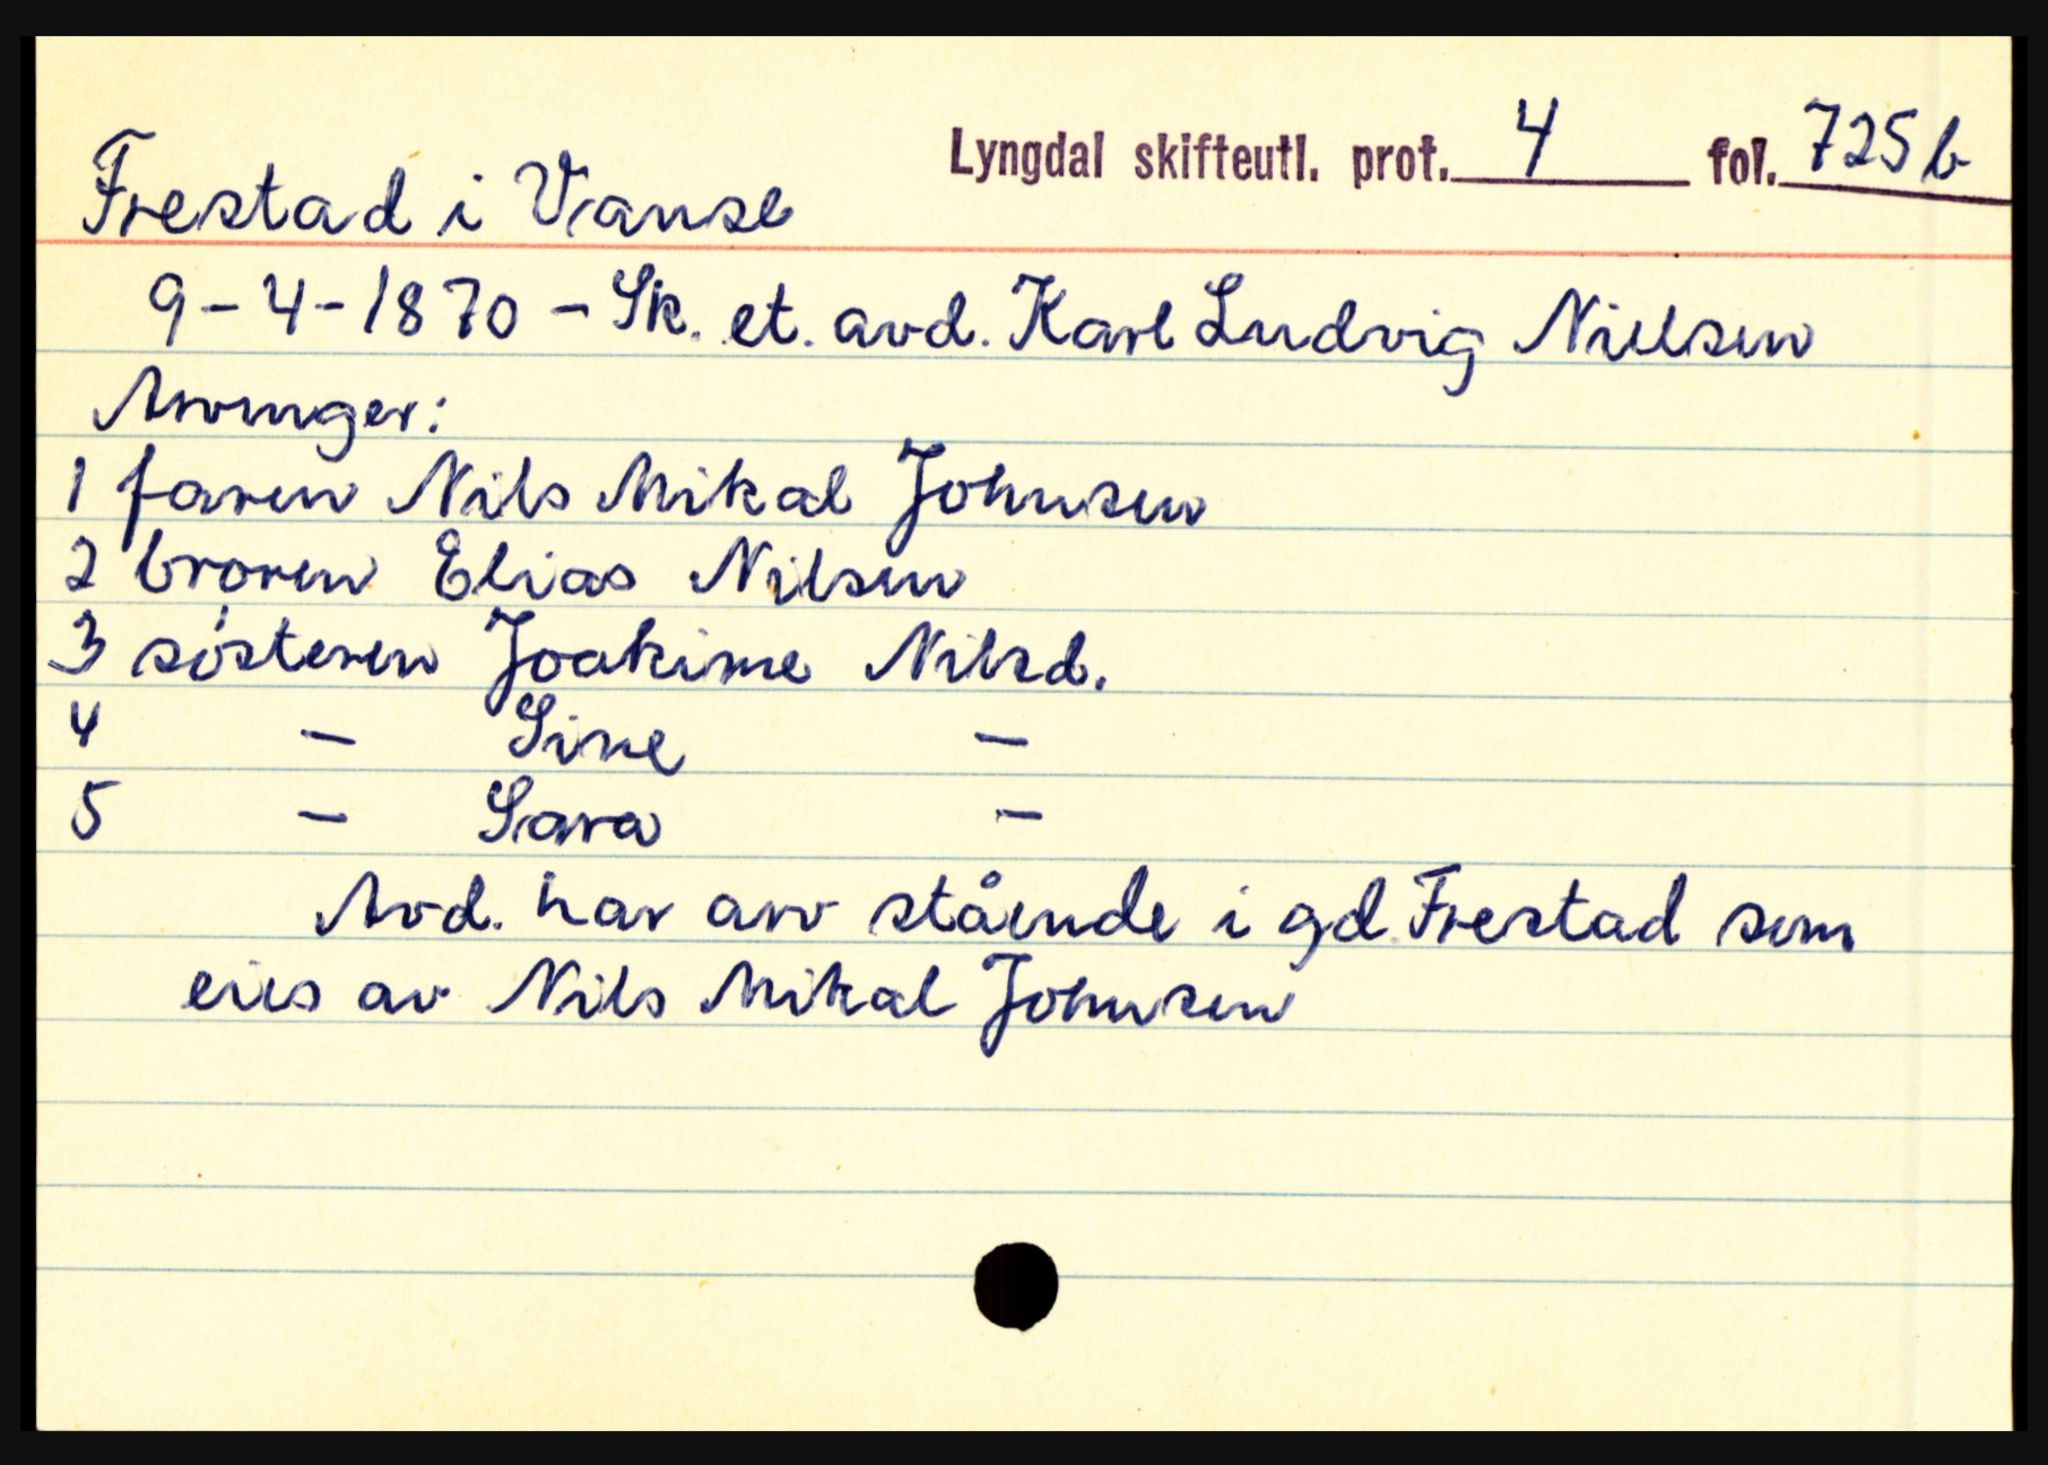 Lyngdal skifteutl. prot. 4 fol. 725b
Frestad i Vanse
9-4-1870 - Sk. et. avd. Karl Ludvig Nielsen
Arvinger:
1 faren Nils Mikal Johnsen
2 broren Elias Nilsen
3 søsteren Joakime Nilsd.
4 - Sine -
5 - Sara -
Avd. har arv stående i gd. Frestad som
eies av Nils Mikal Johnsen